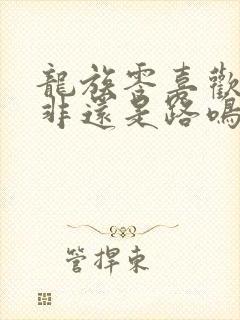 龍族零喜歡
非還是路鳴
管捍東